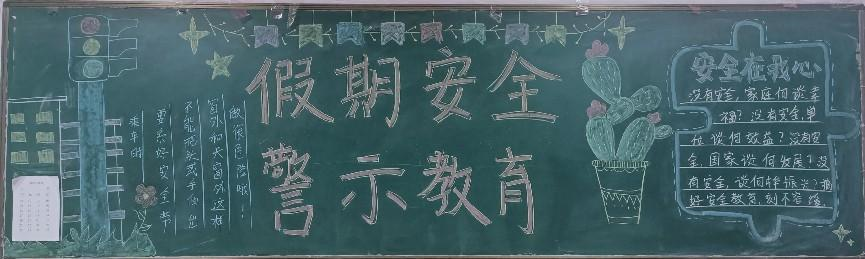 乘车时
要系好安全带
不能把头或手伸出
窗外和天窗外这样
做很危险哦!
假期安全
警示教育
安全在我心
没有安全,家庭何谈幸
福?没有安全,单
位谈何效益?没有安
全,国家谈何发展?没
有安全,谈何振兴?搞
好安全教育,刻不容缓